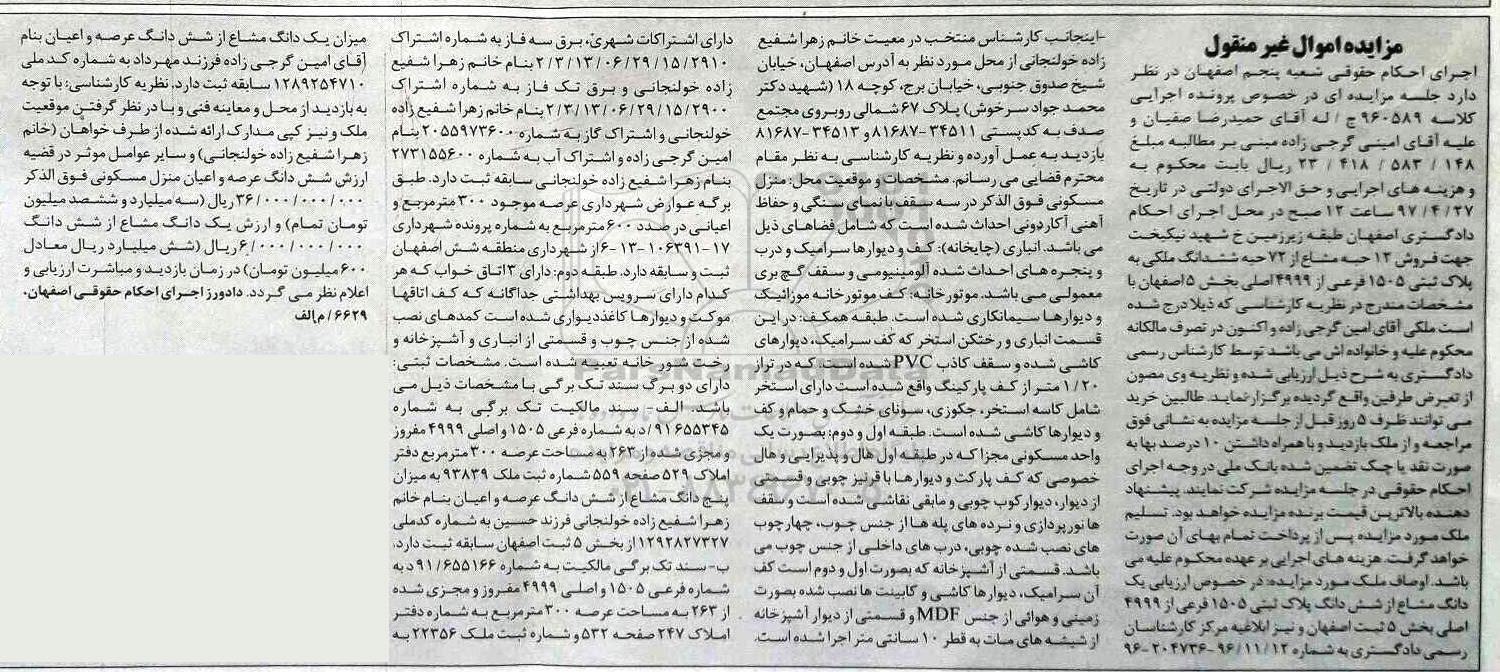 مزایده اموال غیر منقول
اجرای احکام حقوقی شعبه پنجم اصفهان در نظر
دارد جلسه مزایده ای در خصوص پرونده اجرایی
کلاسه ۹۶۰۵۸۹ ج / له آقای حمیدرضا صفیان و
علیه آقای امینی گرجی زاده مبنی بر مطالبه مبلغ
۱۴۸ / ۵۸۳ / ۴۱۸ / ۲۳ ریال بابت محکوم به
و هزینه های اجرایی و حق الاجرای دولتی در تاریخ
۹۷/۴/۲۷ ساعت ۱۲ صبح در محل اجرای احکام
دادگستری اصفهان طبقه زیرزمین خ شهید نیکبخت
جهت فروش ۱۲ حبه مشاع از ۷۲ حبه ششدانگ ملکی به
پلاک ثبتی ۱۵۰۵ فرعی از ۴۹۹۹ اصلی بخش ۵ اصفهان با
مشخصات مندرج در نظریه کارشناسی که ذیلا درج شده
است ملکی آقای امین گرجی زاده و اکنون در تصرف مالکانه
محکوم علیه و خانواده اش می باشد توسط کارشناس رسمی
دادگستری به شرح ذیل ارزیابی شده و نظریه وی مصون
از تعرض طرفین واقع گردیده برگزار نماید. طالبین خرید
می توانند ظرف ۵ روز قبل از جلسه مزایده به نشانی فوق
مراجعه و از ملک بازدید و با همراه داشتن ۱۰ درصد بها به
صورت نقد یا چک تضمین شده بانک ملی در وجه اجرای
احکام حقوقی در جلسه مزایده شرکت نمایند. پیشنهاد
دهنده بالاترین قیمت برنده مزایده خواهد بود. تسلیم
ملک مورد مزایده پس از پرداخت تمام بهای آن صورت
خواهد گرفت. هزینه های اجرایی بر عهده محکوم علیه می
باشد. اوصاف ملک مورد مزایده: در خصوص ارزیابی یک
دانگ مشاع از شش دانگ پلاک ثبتی ۱۵۰۵ فرعی از ۴۹۹۹
اصلی بخش ۵ ثبت اصفهان و نیز ابلاغیه مرکز کارشناسان
رسمی دادگستری به شماره ۹۶/۱۱/۱۲-۲۰۴۷۳۶-۹۶
-اینجانب کارشناس منتخب در معیت خانم زهرا شفیع
زاده خولنجانی از محل مورد نظر به آدرس اصفهان، خیابان
شیخ صدوق جنوبی، خیابان برج، کوچه ۱۸ (شهید دکتر
محمد جواد سرخوش) پلاک ۶۷ شمالی روبروی مجتمع
صدف به کدپستی ۳۴۵۱۱-۸۱۶۸۷ و ۳۴۵۱۳-۸۱۶۸۷
بازدید به عمل آورده و نظریه کارشناسی به نظر مقام
محترم قضایی می رسانم. مشخصات و موقعیت محل: منزل
مسکونی فوق الذکر در سه سقف با نمای سنگی و حفاظ
آهنی آکاردونی احداث شده است که شامل فضاهای ذیل
می باشد. انباری (چاپخانه): کف و دیوارها سرامیک و درب
و پنجره های احداث شده آلومینیومی و سقف گچ بری
معمولی می باشد. موتورخانه: کف موتورخانه موزائیک
و دیوارها سیمانکاری شده است. طبقه همکف: در این
قسمت انباری و رختکن استخر که کف سرامیک، دیوارهای
کاشی شده و سقف کاذب PVC شده است که در تراز
۱/۲۰ متر از کف پارکینگ واقع شده است دارای استخر
شامل کاسه استخر، جکوزی، سونای خشک و حمام و کف
و دیوارها کاشی شده است. طبقه اول و دوم: بصورت یک
واحد مسکونی مجزا که در طبقه اول هال و پذیرایی و هال
خصوصی که کف پارکت و دیوارها با قرنیز چوبی و قسمتی
از دیوار، دیوار کوب چوبی و مابقی نقاشی شده است و سقف
ها نورپردازی و نرده های پله ها از جنس چوب، چهارچوب
های نصب شده چوبی، درب های داخلی از جنس چوب می
باشد. قسمتی از آشپزخانه که بصورت اول و دوم است کف
آن سرامیک، دیوارها کاشی و کابینت ها نصب شده بصورت
زمینی و هوائی از جنس MDF و قسمتی از دیوار آشپزخانه
از شیشه های مات به قطر ۱۰ سانتی متر اجرا شده است.
دارای اشتراکات شهری، برق سه فاز به شماره اشتراک
۲/۳/۱۳/۰۶/۲۹/۱۵/۲۹۱۰ بنام خانم زهرا شفیع
زاده خولنجانی و برق تک فاز به شماره اشتراک
۲/۳/۱۳/۰۶/۲۹/۱۵/۲۹۰۰ بنام خانم زهرا شفیع زاده
خولنجانی و اشتراک گاز به شماره ۲۰۵۵۹۷۳۶۰۰ بنام
امین گرجی زاده و اشتراک آب به شماره ۲۷۳۱۵۵۶۰۰
بنام زهرا شفیع زاده خولنجانی سابقه ثبت دارد. طبق
برگه عوارض شهرداری عرصه موجود ۳۰۰ مترمربع و
اعیانی در صدد ۶۰۰ مترمربع به شماره پرونده شهرداری
۱۷-۱۰۶۳۹۱-۱۳-۶ از شهرداری منطقه شش اصفهان
ثبت و سابقه دارد. طبقه دوم: دارای ۳ اتاق خواب که هر
کدام دارای سرویس بهداشتی جداگانه که کف اتاقها
موکت و دیوارها کاغذدیواری شده است کمدهای نصب
شده از جنس چوب و قسمتی از انباری و آشپزخانه و
رخت شور خانه تعبیه شده است. مشخصات ثبتی:
دارای دو برگ سند تک برگی با مشخصات ذیل می
باشد. الف- سند مالکیت تک برگی به شماره
۹۱۶۵۵۳۴۵/د به شماره فرعی ۱۵۰۵ و اصلی ۴۹۹۹ مفروز
و مجزی شده از ۲۶۳ به مساحت عرصه ۳۰۰ مترمربع دفتر
املاک ۵۲۹ صفحه ۵۵۹ شماره ثبت ملک ۹۳۸۳۹ به میزان
پنج دانگ مشاع از شش دانگ عرصه و اعیان بنام خانم
زهرا شفیع زاده خولنجانی فرزند حسین به شماره کدملی
۱۲۹۲۸۲۷۳۲۷ از بخش ۵ ثبت اصفهان سابقه ثبت دارد.
ب- سند تک برگی مالکیت به شماره ۹۱/۶۵۵۱۶۶ د به
شماره فرعی ۱۵۰۵ و اصلی ۴۹۹۹ مفروز و مجزی شده
از ۲۶۳ به مساحت عرصه ۳۰۰ مترمربع به شماره دفتر
املاک ۲۴۷ صفحه ۵۳۲ و شماره ثبت ملک ۲۲۳۵۶ به
میزان یک دانگ مشاع از شش دانگ عرصه و اعیان بنام
آقای امین گرجی زاده فرزند مهرداد به شماره کد ملی
۱۲۸۹۲۵۴۷۱۰ سابقه ثبت دارد. نظریه کارشناسی: با توجه
به بازدید از محل و معاینه فنی و با در نظر گرفتن موقعیت
ملک و نیز کپی مدارک ارائه شده از طرف خواهان (خانم
زهرا شفیع زاده خولنجانی) و سایر عوامل موثر در قضیه
ارزش شش دانگ عرصه و اعیان منزل مسکونی فوق الذکر
۳۶/۰۰۰/۰۰۰/۰۰۰ ریال (سه میلیارد و ششصد میلیون
تومان تمام) و ارزش یک دانگ مشاع از شش دانگ
۶/۰۰۰/۰۰۰/۰۰۰ ریال (شش میلیارد ریال معادل
۶۰۰ میلیون تومان) در زمان بازدید و مباشرت ارزیابی و
اعلام نظر می گردد. دادورز اجرای احکام حقوقی اصفهان.
۶۶۲۹/م الف
ParsNamadData